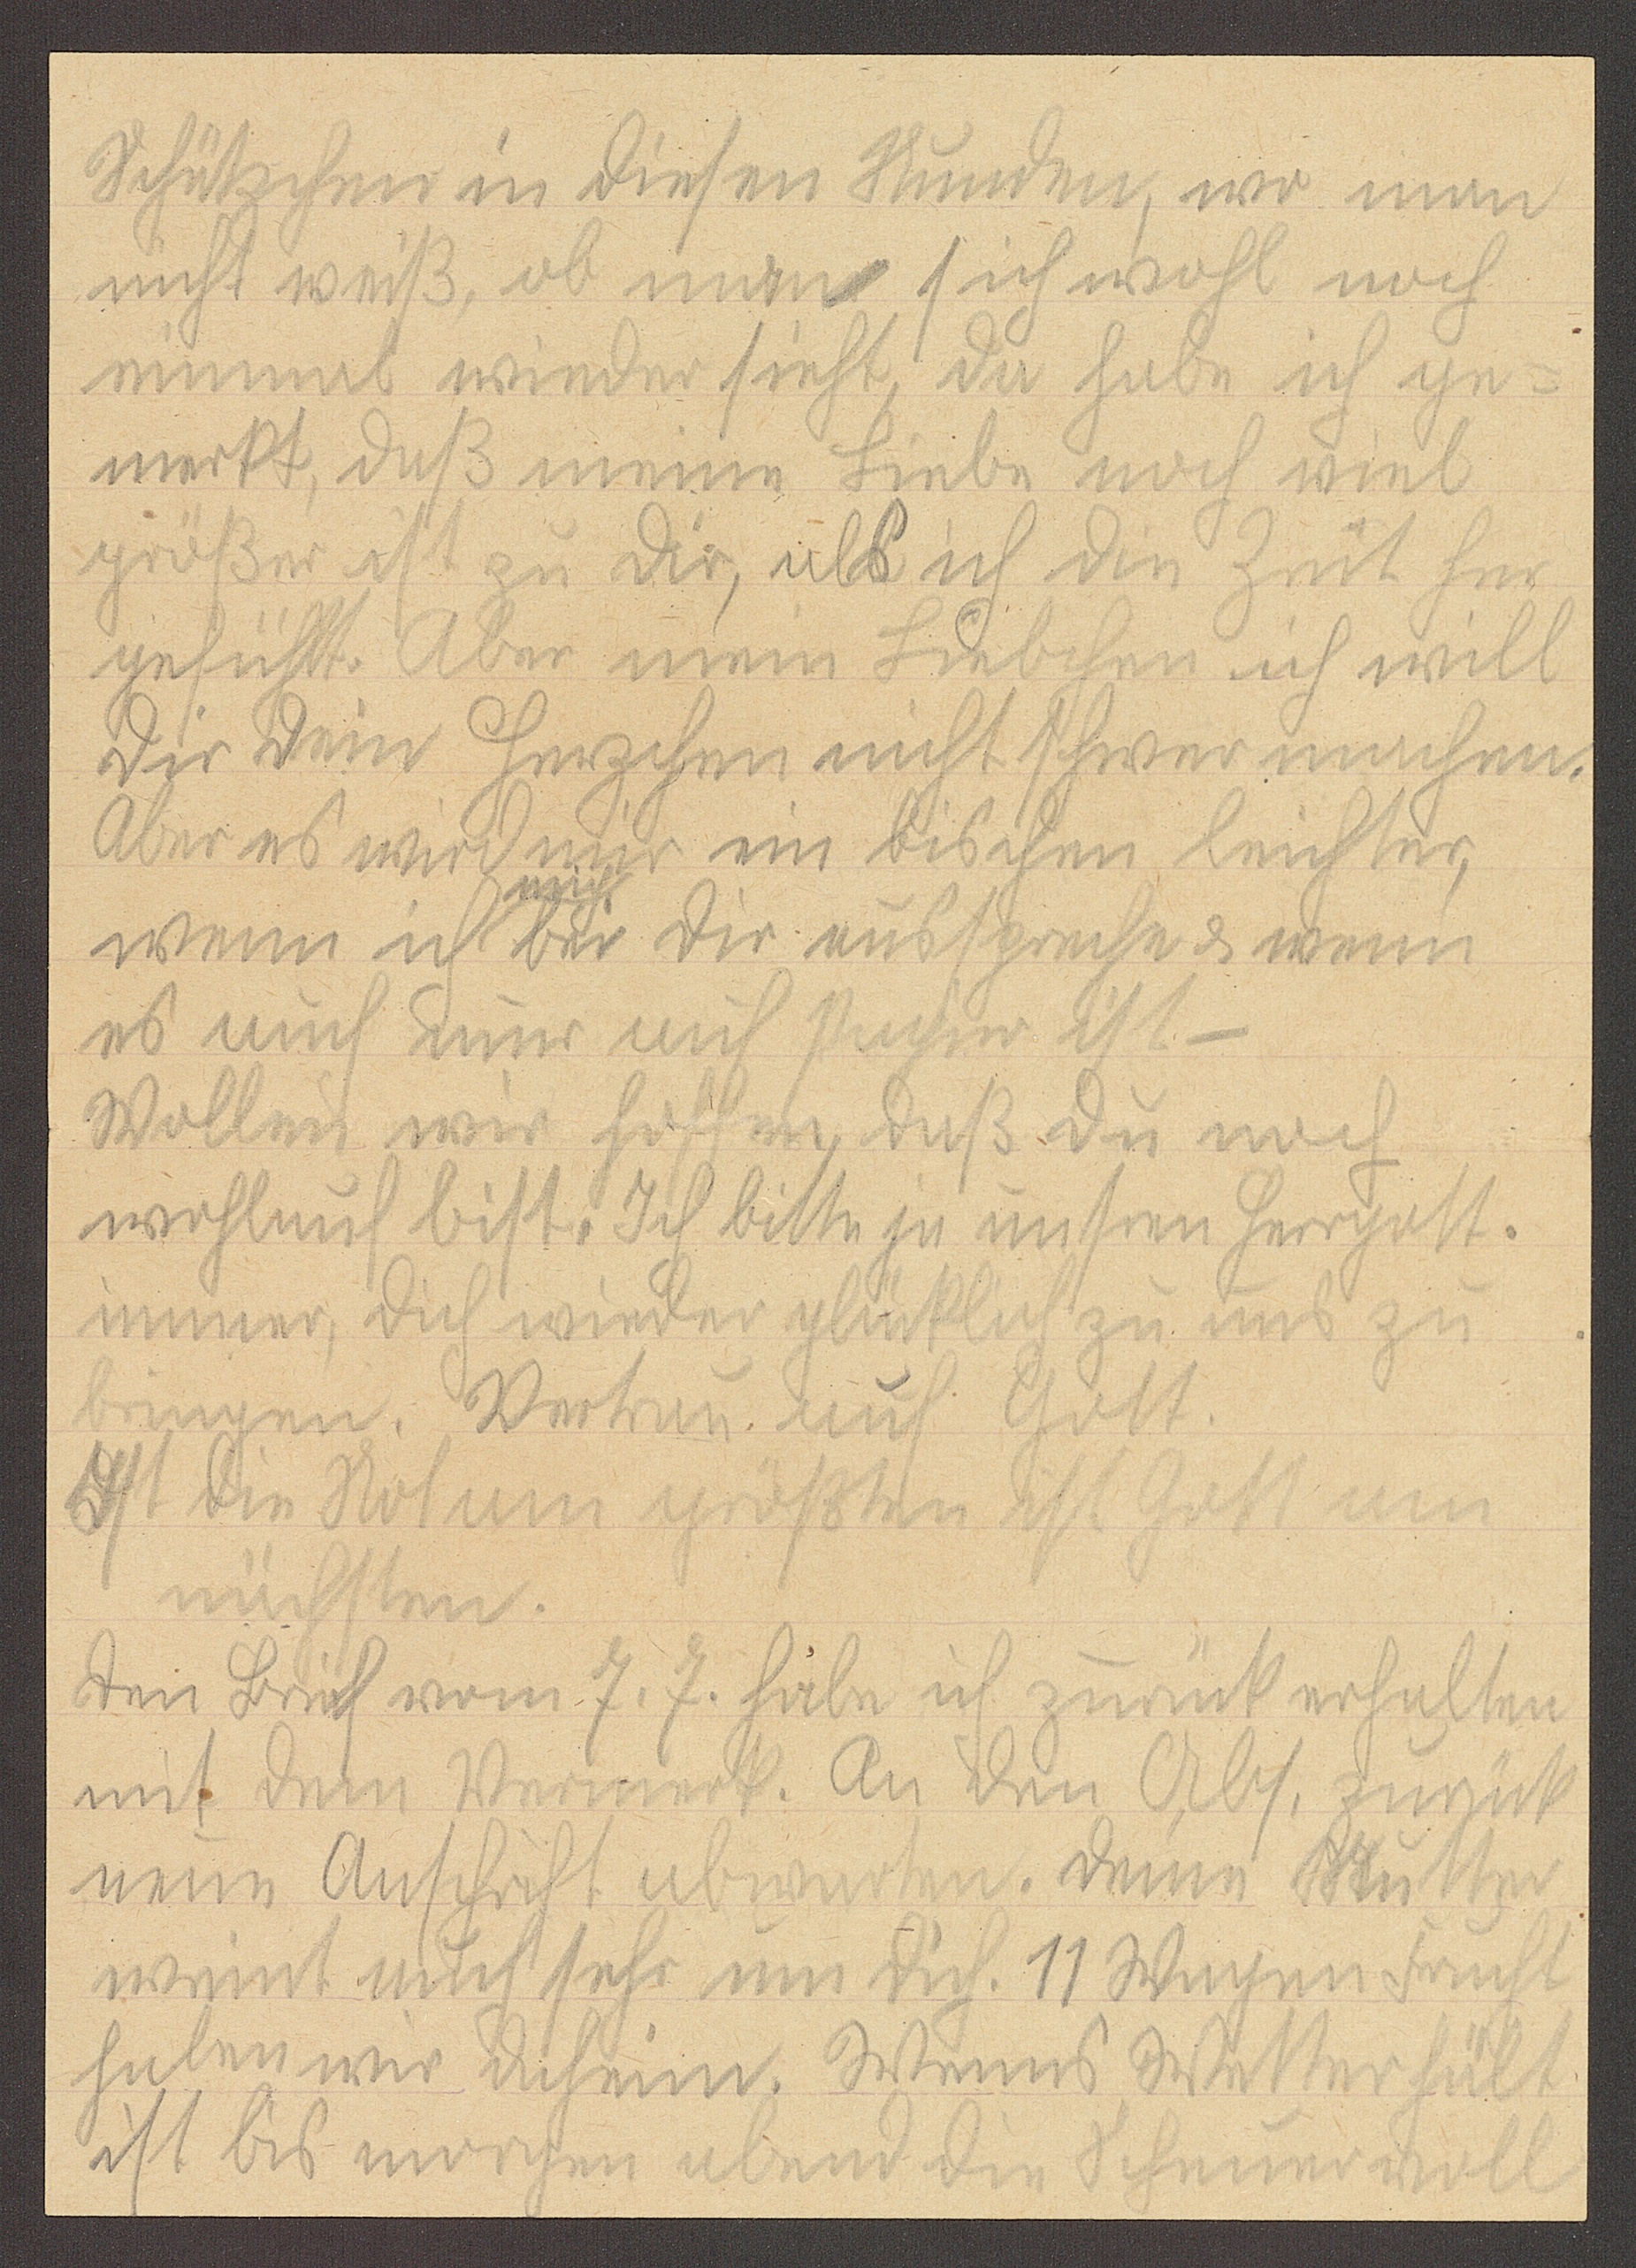 Schätzchen in diesen Stunden, wo man
nicht weiß, ob man sich wohl noch
einmal wieder sieht, da habe ich ge=
merkt, daß meine Liebe noch viel
größer ist zu Dir, als ich die Zeit her
gefühlt. Aber mein Liebchen ich will
Dir Dein Herzchen nicht schwer machen.
Aber es wird mir ein bischen leichter,
mich
wenn ich bei Dir ausspreche & wenn
es auch nur auf Papier ist –
Wollen wir hoffen, daß Du noch
wohlauf bist. Ich bitte ja unsren Herrgott.
immer, Dich wieder glücklich zu uns zu
bringen. Vertrau auf Gott.
Ist die Not am größten ist Gott am
nächsten.
Den Brief vom 7. 7. habe ich zurück erhalten
mit dem Vermerk. An den Abs. zurück
neue Anschrift abwarten. Deine Mutter
weint auch sehr um Dich. 11 Wagen Frucht
haben wir daheim. Wenns Wetter hält
ist bis morgen abend die Scheuer voll